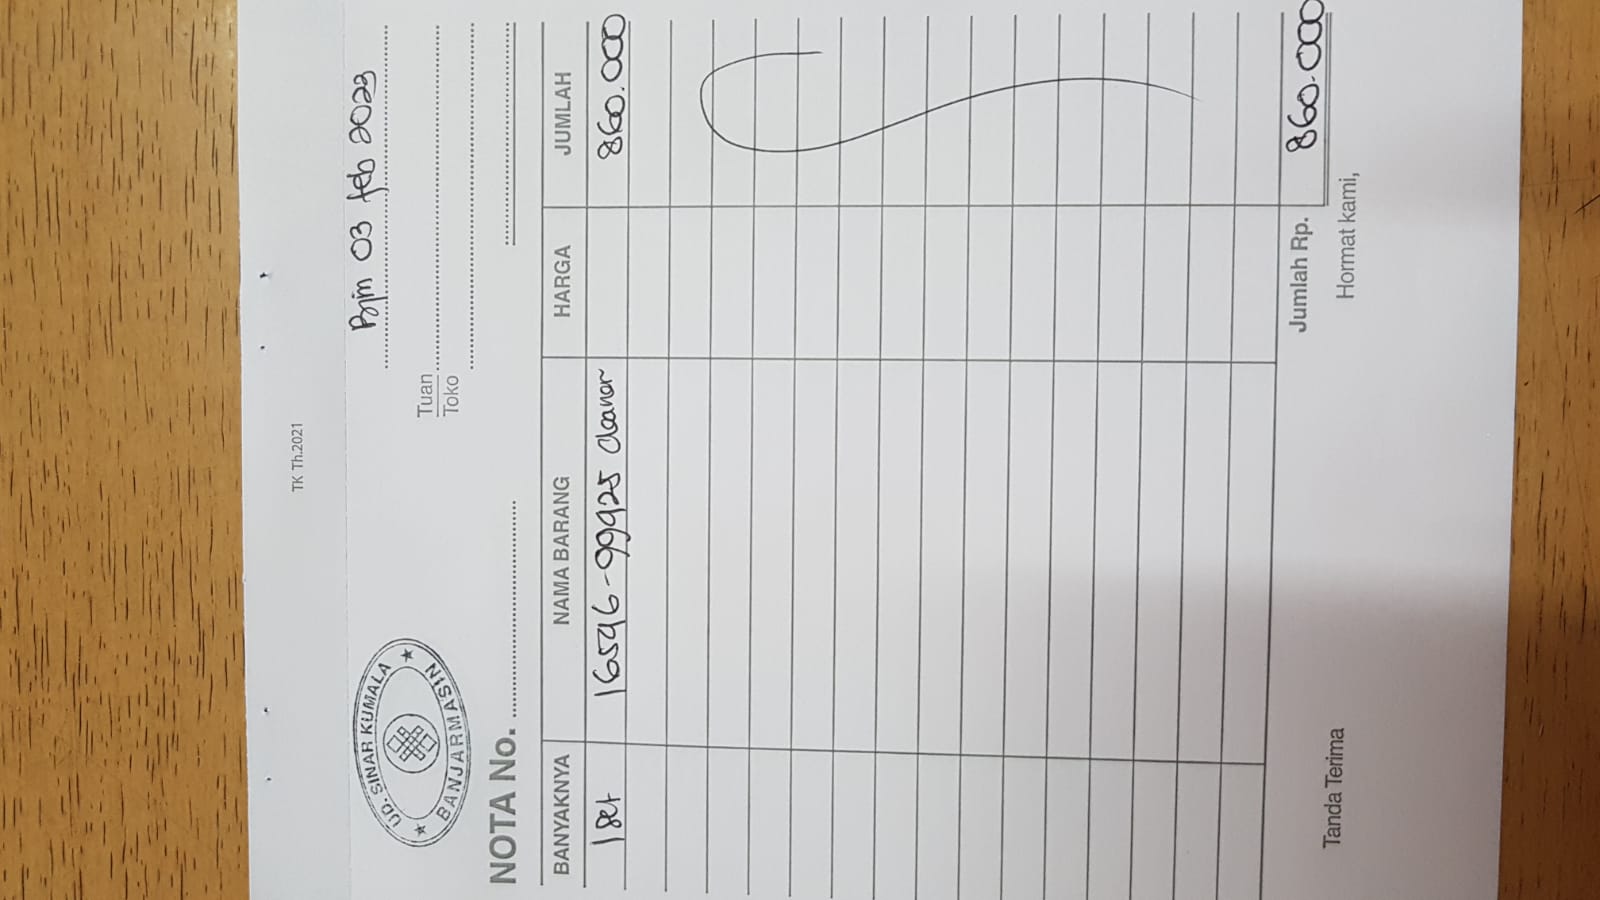 TK Th.2021
UD. SINAR KUMALA
★ BANJARMASIN ★
Bjm 03 feb 2023
Tuan
Toko
NOTA No.
BANYAKNYA NAMA BARANG HARGA JUMLAH
1 set 16546-99925 cleanar 860.000
Jumlah Rp. 860.000
Tanda Terima Hormat kami,